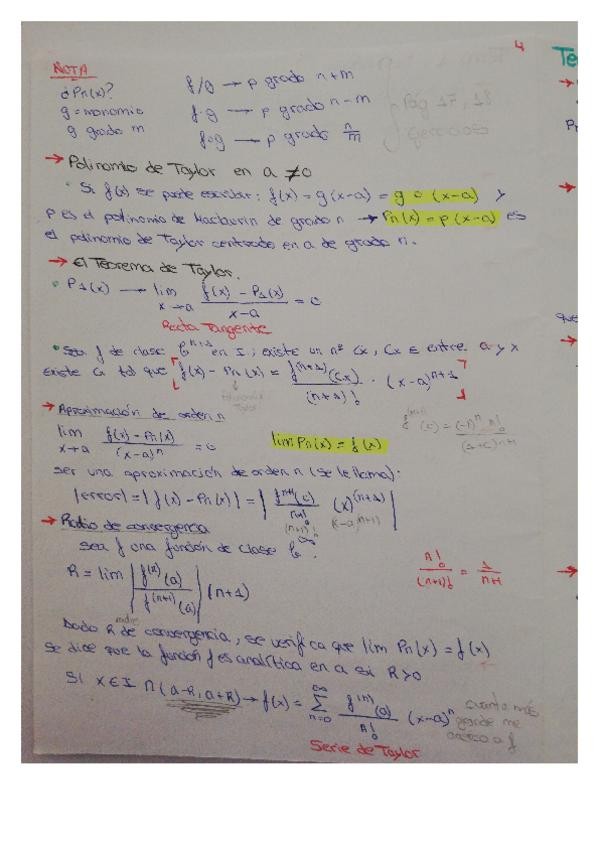 4
NOTA
¿Pn(x)?
g = monomio
g grado m
f/g → p grado n+m
f·g → p grado n-m
f∘g → p grado n/m
Pág 17, 18
ejercicios
→ Polinomio de Taylor en a ≠ 0
• Si f(x) se puede escribir: f(x) = g(x-a) = g ∘ (x-a) y
p es el polinomio de Maclaurin de grado n → Pn(x) = p(x-a) es
el polinomio de Taylor centrado en a de grado n.
→ El Teorema de Taylor.
• P1(x) → lim x→a (f(x) - P1(x))/(x-a) = 0
Recta Tangente
• Sea f de clase C^(n+1) en I; existe un nº Cx, Cx ∈ entre a y x
existe Cx tal que [f(x) - Pn(x) = (f^(n+1)(Cx))/((n+1)!) · (x-a)^(n+1)]
Polinomio
Taylor
→ Aproximación de orden n
lim x→a (f(x) - Pn(x))/(x-a)^n = 0
lim Pn(x) = f(x)
ser una aproximación de orden n (se le llama):
|error| = |f(x) - Pn(x)| = |(f^(n+1)(c))/(n+1)! (x)^(n+1)|
(n+1)! (x-a)^(n+1)
→ Radio de convergencia
sea f una función de clase C^∞.
R = lim |f^(n)(a)/f^(n+1)(a)| (n+1)
n!/(n+1)! = 1/(n+1)
radio
Dado R de convergencia, se verifica que lim Pn(x) = f(x)
Se dice que la función f es analítica en a si R>0
Si x ∈ I ∩ (a-R, a+R) → f(x) = ∑ n=0 ∞ (f^(n)(a))/n! (x-a)^n
cuanto más
grande me
acerco a f
Serie de Taylor